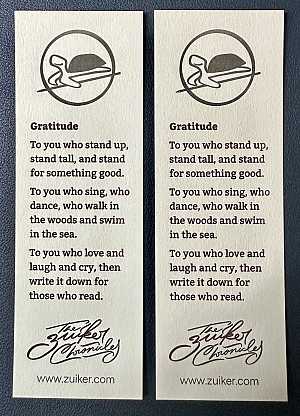 Gratitude
To you who stand up,
stand tall, and stand
for something good.
To you who sing, who
dance, who walk in
the woods and swim
in the sea.
To you who love and
laugh and cry, then
write it down for
those who read.
The
Zuiker
Chronicles
www.zuiker.com
Gratitude
To you who stand up,
stand tall, and stand
for something good.
To you who sing, who
dance, who walk in
the woods and swim
in the sea.
To you who love and
laugh and cry, then
write it down for
those who read.
The
Zuiker
Chronicles
www.zuiker.com